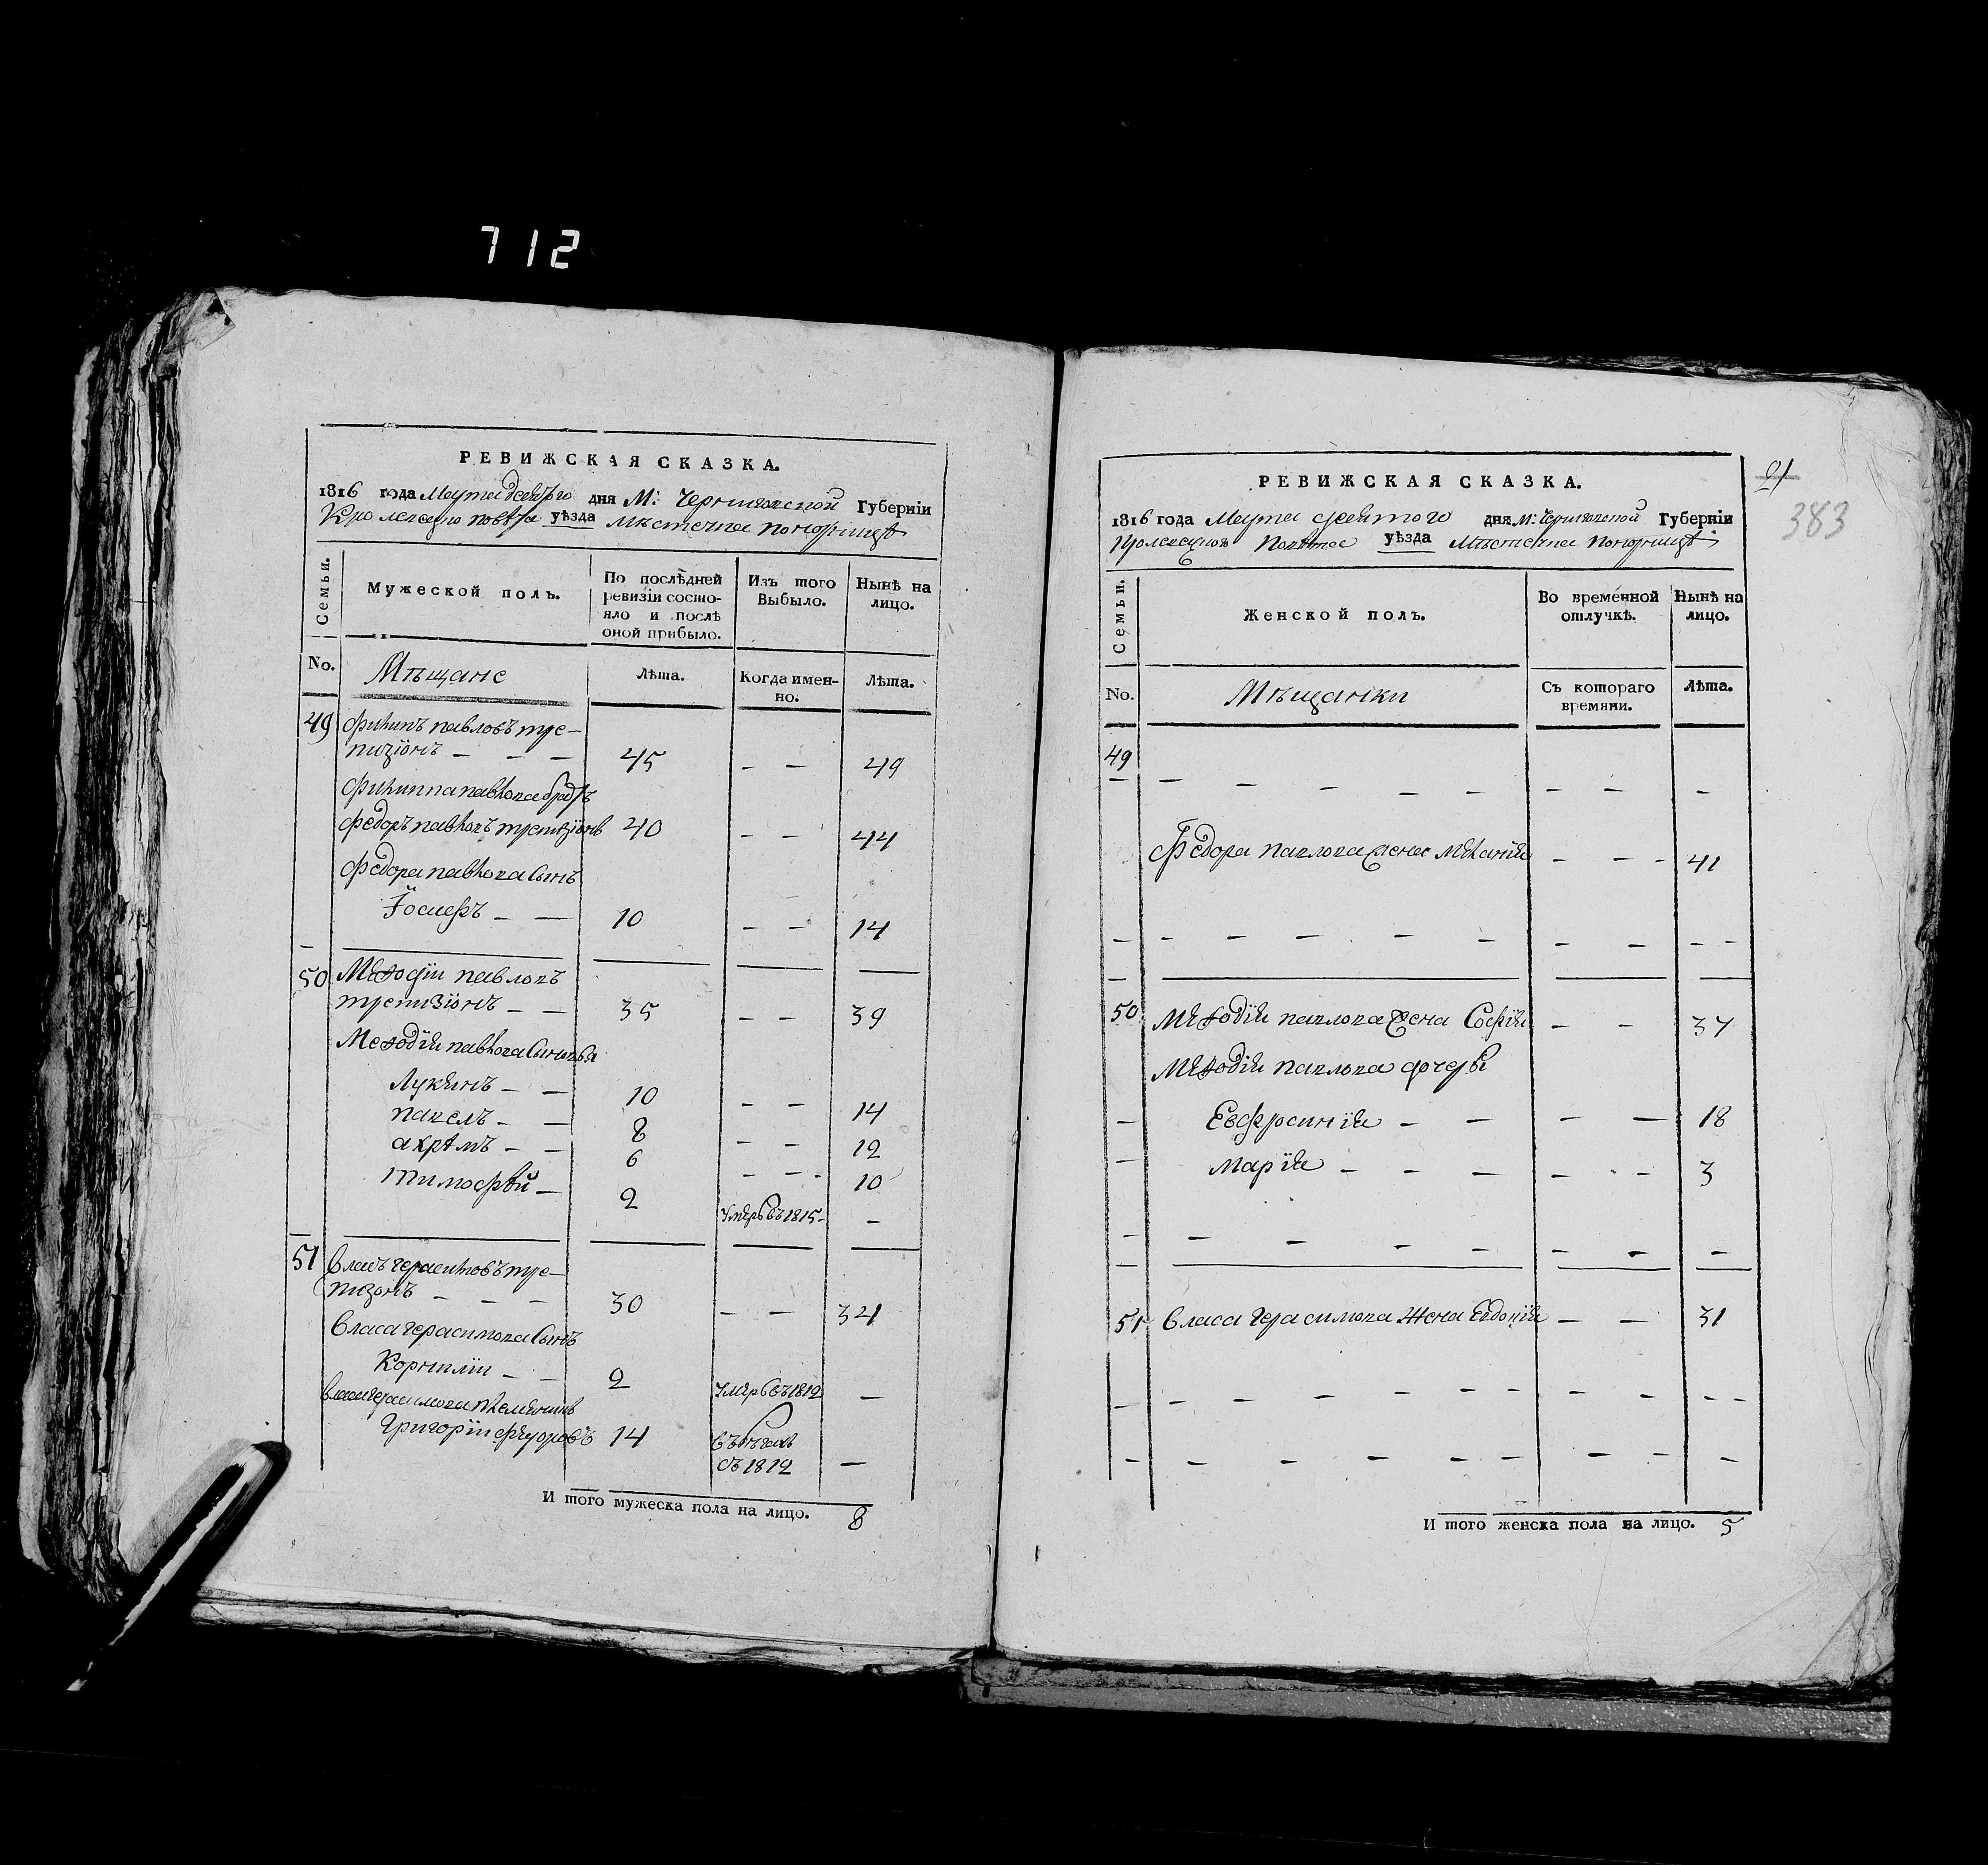 712
РЕВИЖСКАЯ СКАЗКА.
1816 года Марта девятого дня М: Черниговской Губерніи
Кролевецкого повѣта уѣзда Мѣстечка Понорницѣ
Семьи.
Мужеской полъ.
По послѣдней ревизіи состояло и послѣ оной прибыло.
Изъ того Выбыло.
Нынѣ на лицо.
No.
Мѣщане
Лѣта.
Когда именно.
Лѣта.
49 Филипъ павловъ тре-
пизіонъ — — — 45 — — 49
Филиппа павлова братъ
Федоръ павловъ трепизіонъ 40 — — 44
Федора павлова сынъ
Іосифъ — — 10 — — 14
50 Меѳодіи павловъ
трепизіонъ — — 35 — — 39
Меѳодія павлова сыновья
Лукянъ — — 10 — — 14
павелъ — — 8 — — 12
ахрѣмъ — — 6 — — 10
тимофѣй — 2 Умеръ въ 1815 — —
51 Власъ герасимовъ тре-
пизонъ — — — 30 — — 34
Власа герасимова сынъ
Корнилии — — 2 Умеръ въ 1812 —
Власа герасимова племянникъ
Григоріи Федоровъ 14 въ бѣгахъ
съ 1812 —
И того мужеска пола на лицо. 8
21
383
РЕВИЖСКАЯ СКАЗКА.
1816 года Марта девятого дня М: Черниговской Губерніи
Кролевецкого Повѣта уѣзда Мѣстечка Понорницѣ
Семьи.
Женской полъ.
Во временной отлучкѣ.
Нынѣ на лицо.
No.
Мѣщанки
Съ котораго времяни.
Лѣта.
49 — — — — — — — —
Федора павлова жена Меланія — — — 41
— — — — — — — — —
50 Меѳодія павлова жена Софія — — 37
Меѳодія павлова дочери
Евфросинія — — — — 18
Марія — — — — — — 3
— — — — — — — —
51 Власа герасимова жена Евдокія — — 31
— — — — — — — — — —
— — — — — — — — —
И того женска пола на лицо. 5